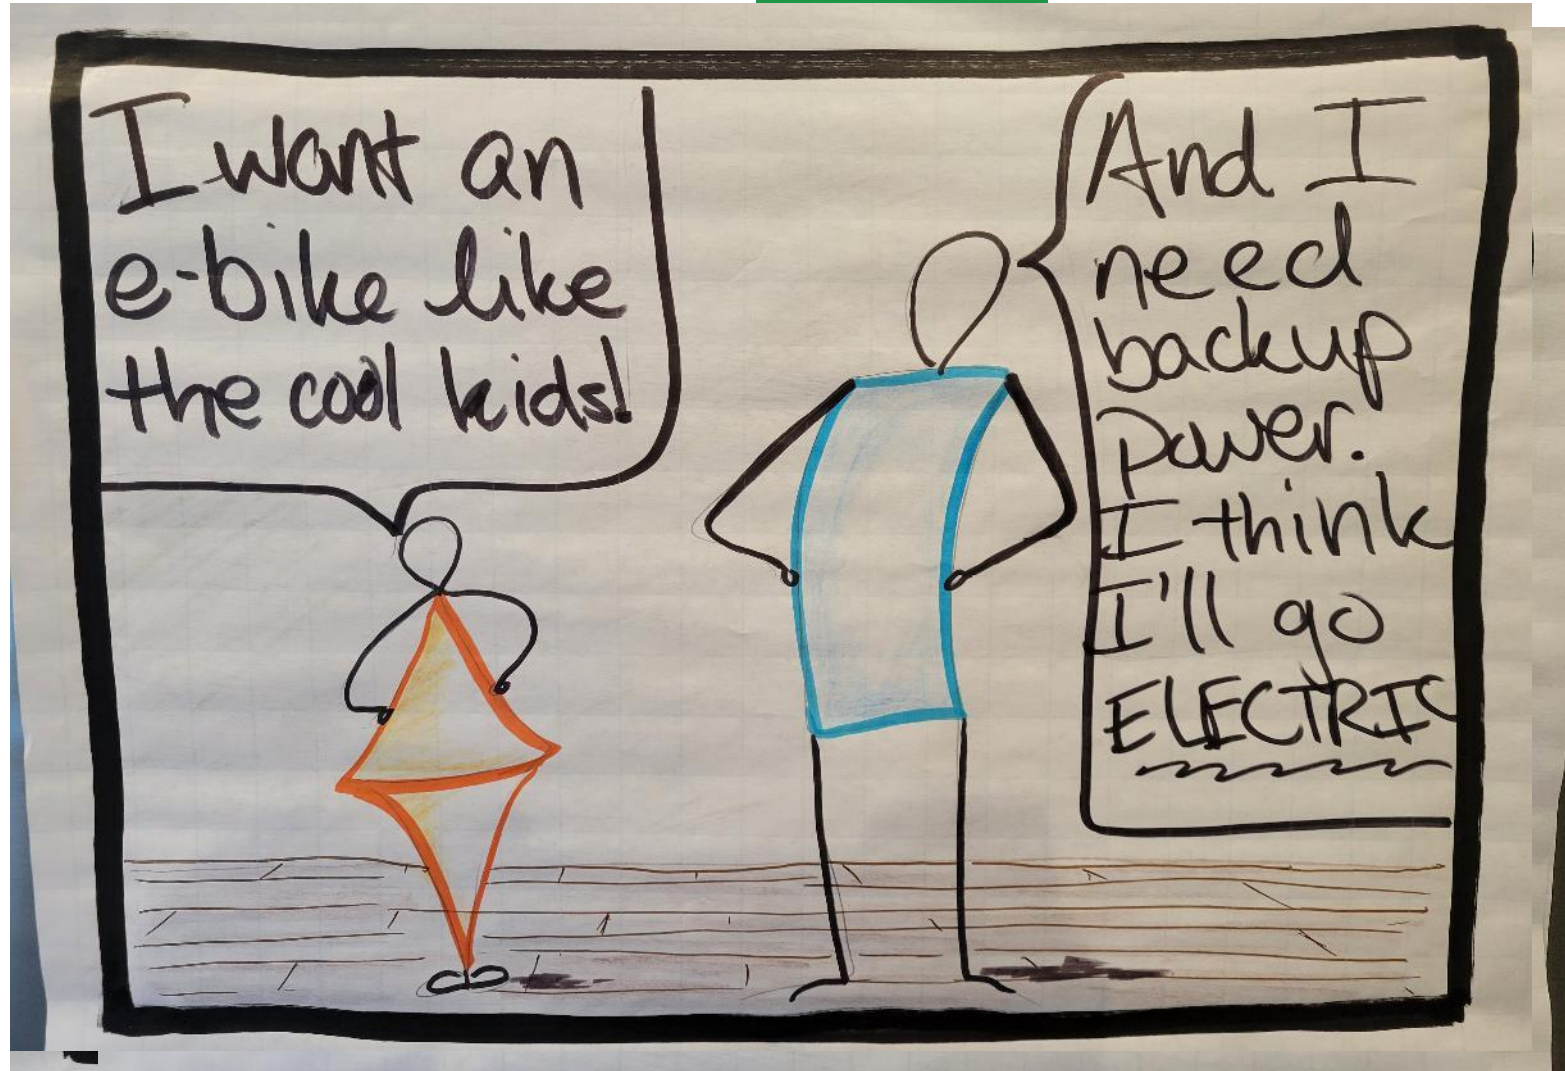 I want an
e-bike like
the cool kids!
And I
need
backup
power.
I think
I'll go
ELECTRIC